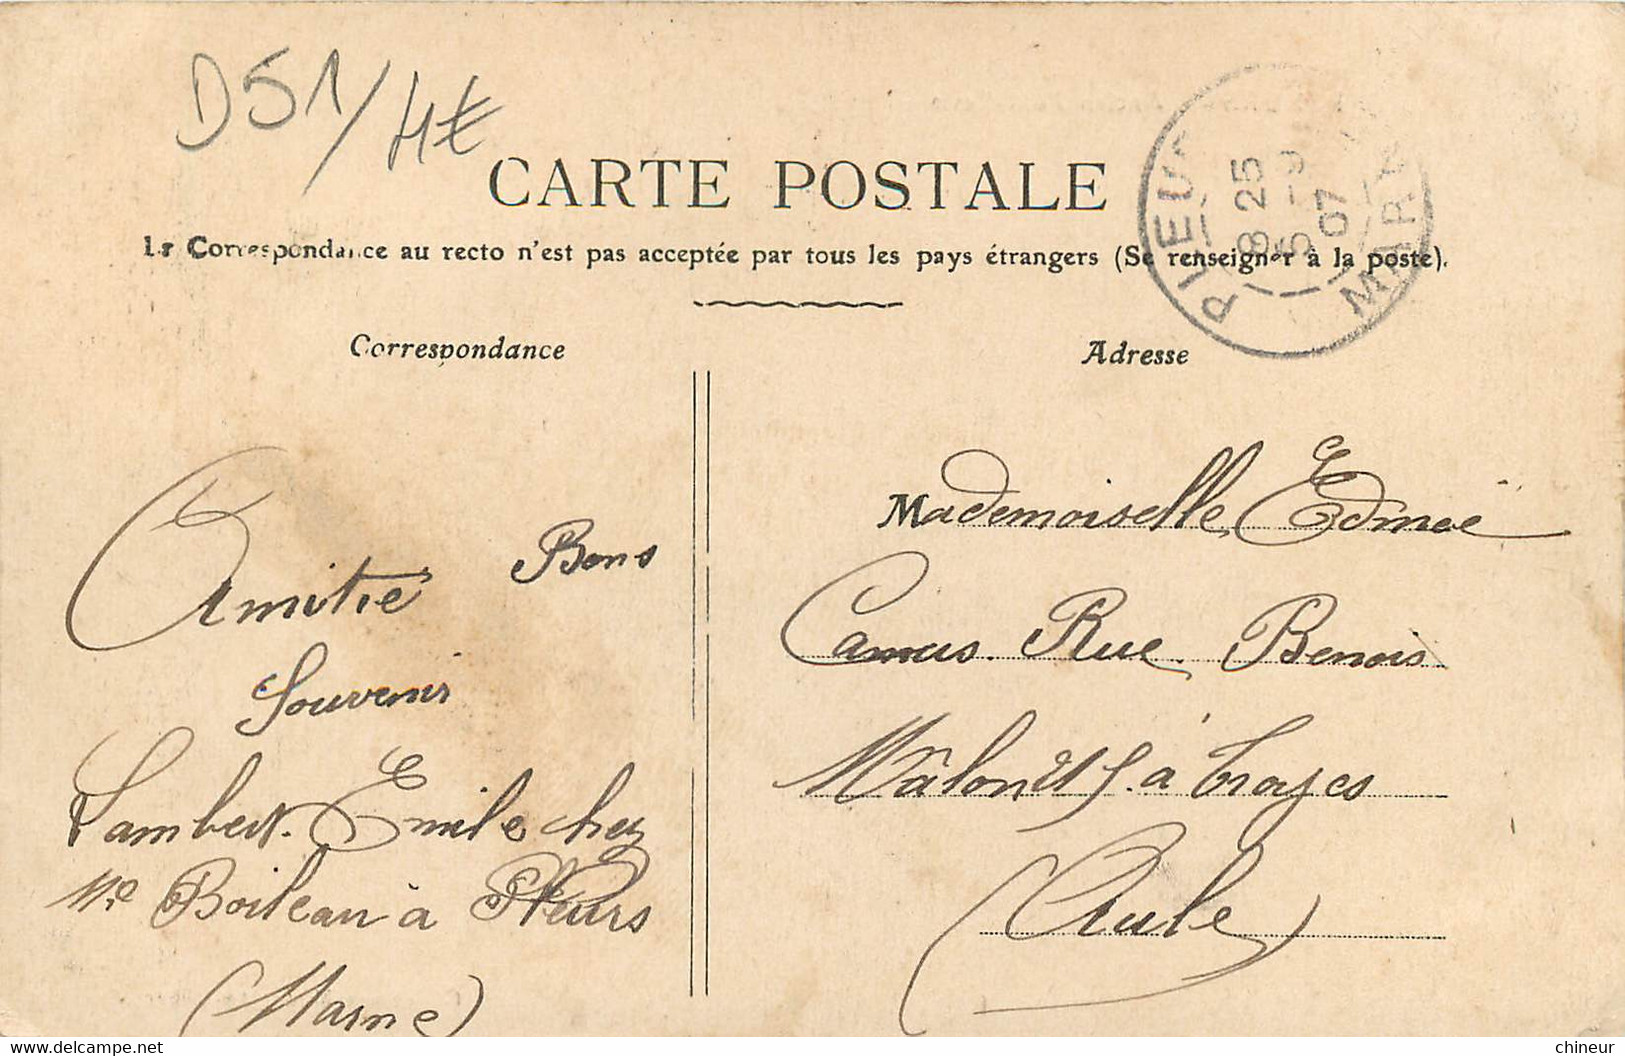 D51/4€
CARTE POSTALE
La Correspondance au recto n'est pas acceptée par tous les pays étrangers (Se renseigner à la poste).
PLEURS
8 25
5-9
07
MARNE
Correspondance
Adresse
Amitié Bons
Souvenir
Lambert Emile chez
Mr Boileau à Pleurs
(Marne)
Mademoiselle Edmée
Camus. Rue Benois
à Troyes
(Aube)
chineur